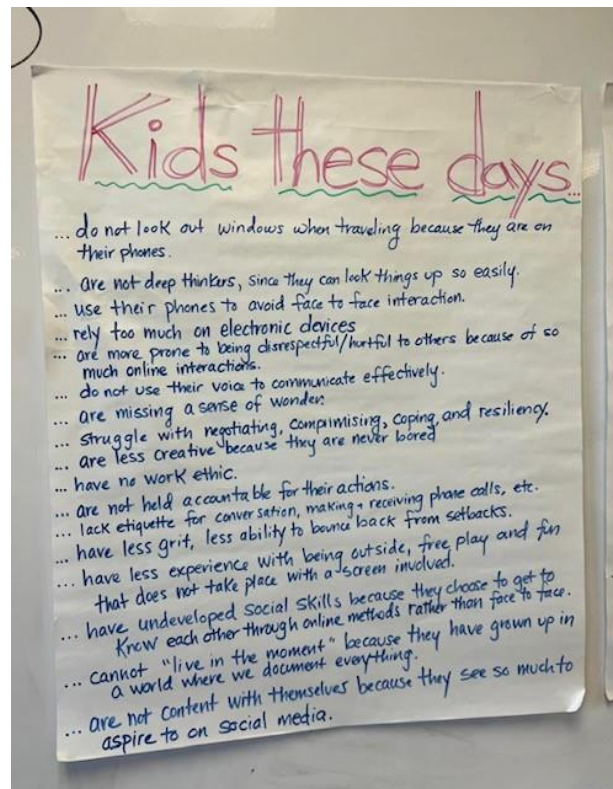 Kids these days...
... do not look out windows when traveling because they are on
their phones.
... are not deep thinkers, since they can look things up so easily.
... use their phones to avoid face to face interaction.
... rely too much on electronic devices
... are more prone to being disrespectful/hurtful to others because of so
much online interactions.
... do not use their voice to communicate effectively.
... are missing a sense of wonder.
... struggle with negotiating, comprimising, coping, and resiliency.
... are less creative because they are never bored
... have no work ethic.
... are not held accountable for their actions.
... lack etiquette for conversation, making + receiving phone calls, etc.
... have less grit, less ability to bounce back from setbacks.
... have less experience with being outside, free play and fun
that does not take place with a screen involved.
... have undeveloped social skills because they choose to get to
know each other through online methods rather than face to face.
... cannot "live in the moment" because they have grown up in
a world where we document everything.
... are not content with themselves because they see so much to
aspire to on social media.